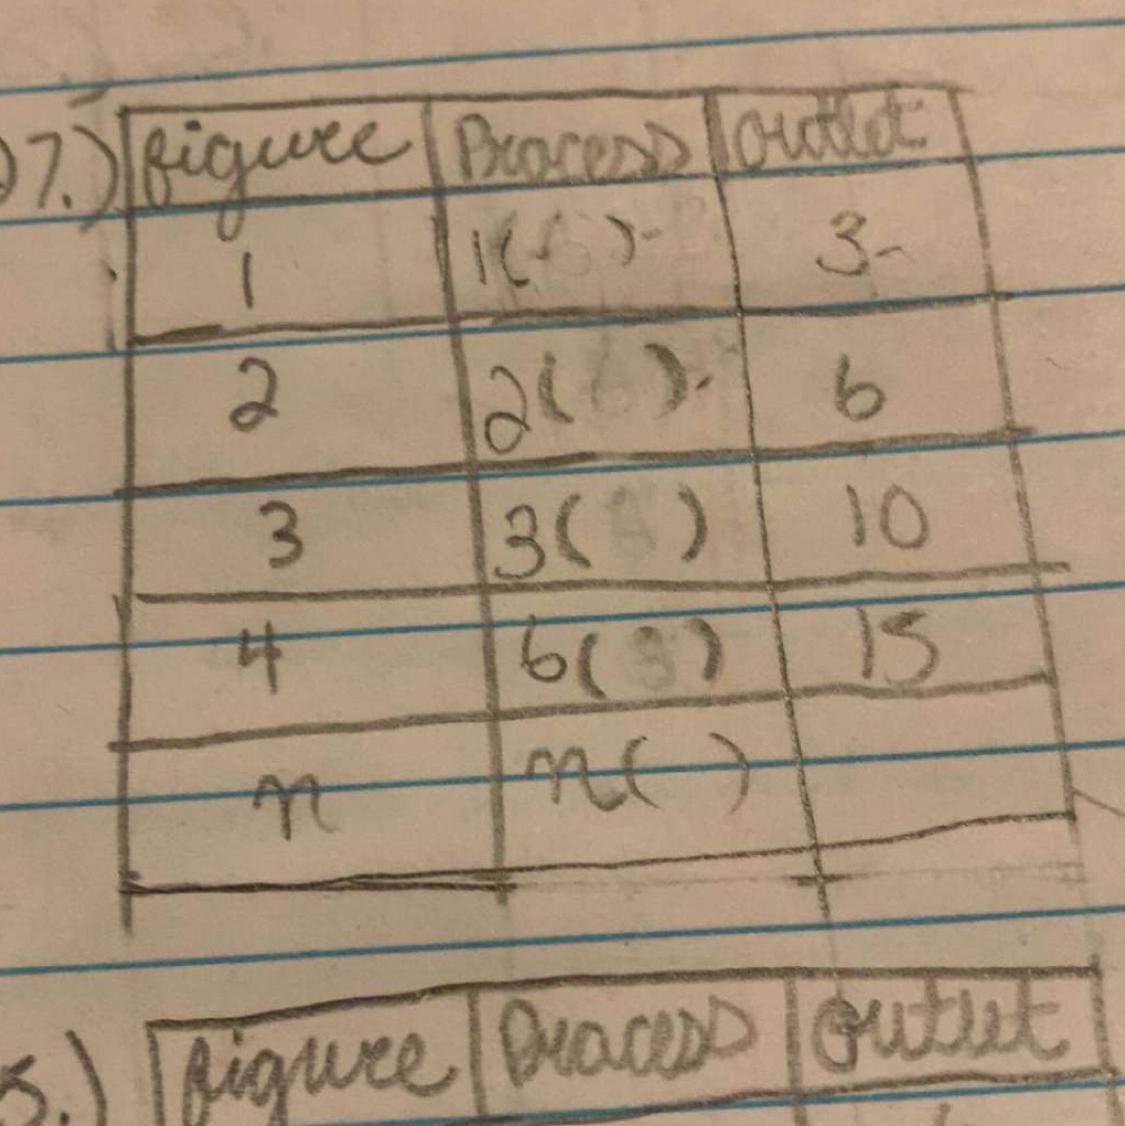 27.) figure Process outlet
1 1( ) 3
2 2( ) 6
3 3( ) 10
4 6( ) 15
n n( )
5.) figure Process outlet